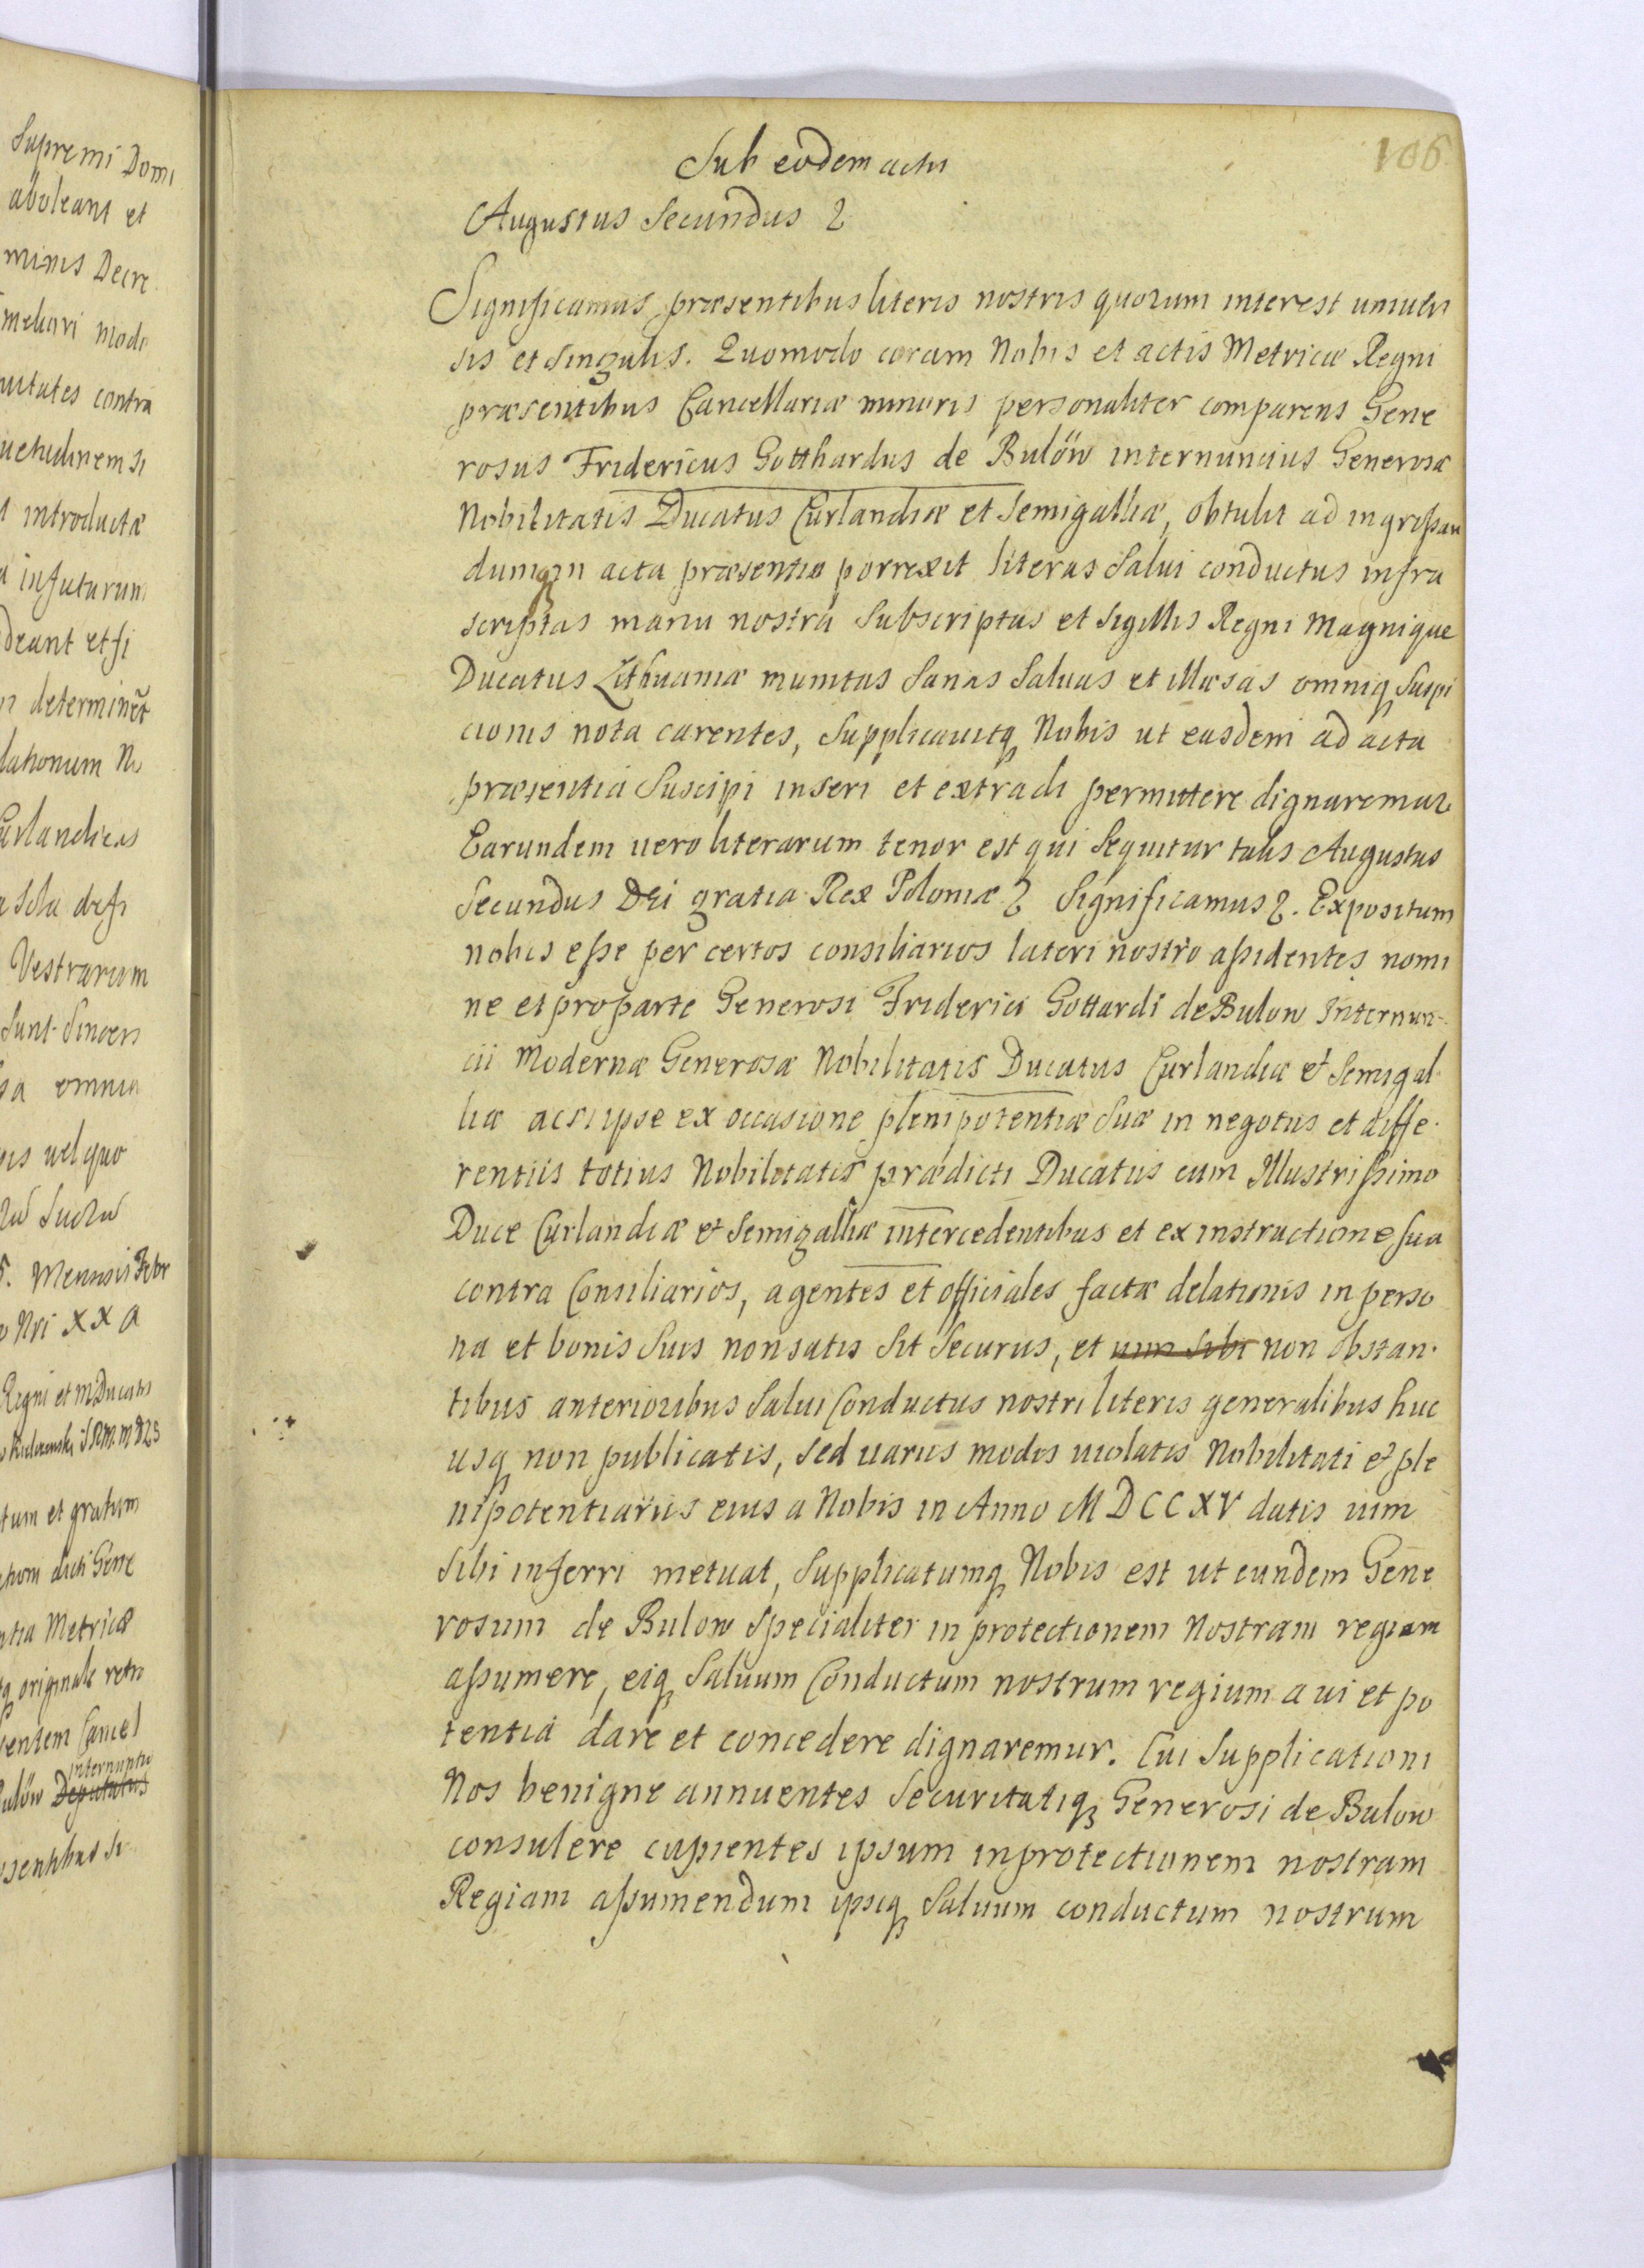 Supremi Domi
aboleant et
minis Decre
meliori modo
uitates contra
uetudinem si
introductæ
infuturum
deant et si
determinet
lationum No
Curlandicas
Vestrarum
sunt. Sincers
omnia
uel quo
5. Mensis Febr
Nri XXA
Regni et M Ducatus
tum et gratum
dicti Gene
Metricæ
originale retro
Cancel
internuntiu
Bulöw Deputatus
106.
Sub eodem actu
Augustus Secundus 2
Significamus præsentibus literis nostris quorum interest uniuer
sis et singulis. Quomodo coram Nobis et actis Metricæ Regni
præsentibus Cancellariæ minoris personaliter comparens Gene
rosus Fridericus Gotthardus de Bulöw internuncius Generosæ
Nobilitatis Ducatus Curlandiæ et Semigalliæ, obtulit ad ingrossan
dumqꝫ in acta præsentia porrexit literas Salui conductus infra
scriptas manu nostra Subscriptas et Sigillis Regni Magnique
Ducatus Lithuaniæ munitas Sanas Saluas et illæsas omniqꝫ Suspi
cionis nota carentes, Supplicauitqꝫ Nobis ut easdem ad acta
præsentia Suscipi inseri et extradi permittere dignaremur
Earundem uero literarum tenor est qui Sequitur talis Augustus
Secundus Dei gratia Rex Poloniæ 2 Significamus 2. Expositum
nobis esse per certos consiliarios lateri nostro assidentes nomi
ne et pro parte Generosi Friderici Gottardi de Bulow Internun-
cii Modernæ Generosæ Nobilitatis Ducatus Curlandiæ et Semigal-
liæ ac si ipse ex occasione plenipotentiæ Suæ in negotiis et diffe-
rentiis totius Nobilitatis prædicti Ducatus cum Illustrissimo
Duce Curlandiæ et Semigalliæ intercedentibus et ex instructione sua
contra Consiliarios, agentes et officiales factæ delationis in perso
na et bonis Suis non satis Sit Securus, et uim sibi non obstan-
tibus anterioribus Salui Conductus nostri literis generalibus huc
usqꝫ non publicatis, sed uariis modis uiolatis Nobilitati et ple
nipotentiariis eius a Nobis in Anno MDCCXV datis uim
Sibi inferri metuat, Supplicatumqꝫ Nobis est ut eundem Gene
rosum de Bulow Specialiter in protectionem Nostram regiam
assumere, eiqꝫ Saluum Conductum nostrum regium a ui et po
tentia dare et concedere dignaremur. Cui Supplicationi
Nos benigne annuentes Securitatiqꝫ Generosi de Bulow
consulere cupientes ipsum in protectionem nostram
Regiam assumendum ipsiqꝫ Saluum conductum nostrum